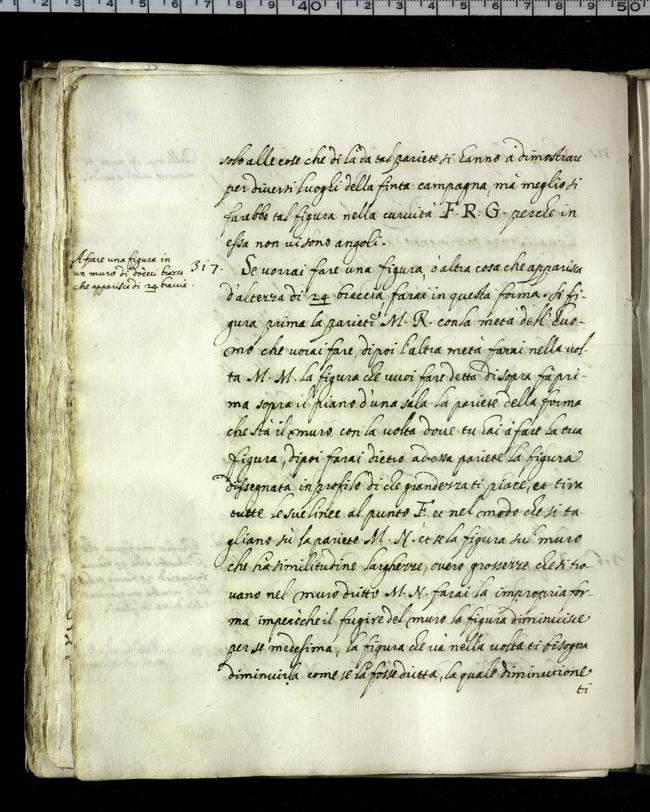 solo alle cose che di là da tal pariete si hanno à dimostrare
per diversi luoghi della finta campagna, mà meglio si
farebbe tal figura nella curvità F. R. G. perche in
essa non vi sono angoli.
A fare una figura in
un muro di dodeci bracc
che apparisca di 24 bracci.
317.
Se vorrai fare una figura, ò altra cosa che apparisca
d'altezza di 24 braccia, farai in questa forma. Fi fi-
gura prima la pariete M. R. con la metà dell'huo-
mo che vorai fare, dipoi l'altra metà farai nella vol-
ta M. M. la figura che vuoi fare detta di sopra fà pri-
ma sopra il piano d'una sala la pariete della forma
che stà il muro con la volta dove tu hai à fare la tua
figura, dipoi farai dietro ad essa pariete la figura
dissegnata in profilo di che grandezza ti piace, et tira
tutte le sue linee al punto F. et nel modo che si ta
gliano sù la pariete M. N. et se la figura sul muro
che hà similitudine larghezze, overo grossezze che si tro-
vano nel muro dritto M. N. farai la impropria for-
ma imperòche il fugire del muro la figura diminuisce
per se medesima, la figura che và nella volta ti bisogna
diminuirla come se la fosse dritta, la quale diminutione
ti